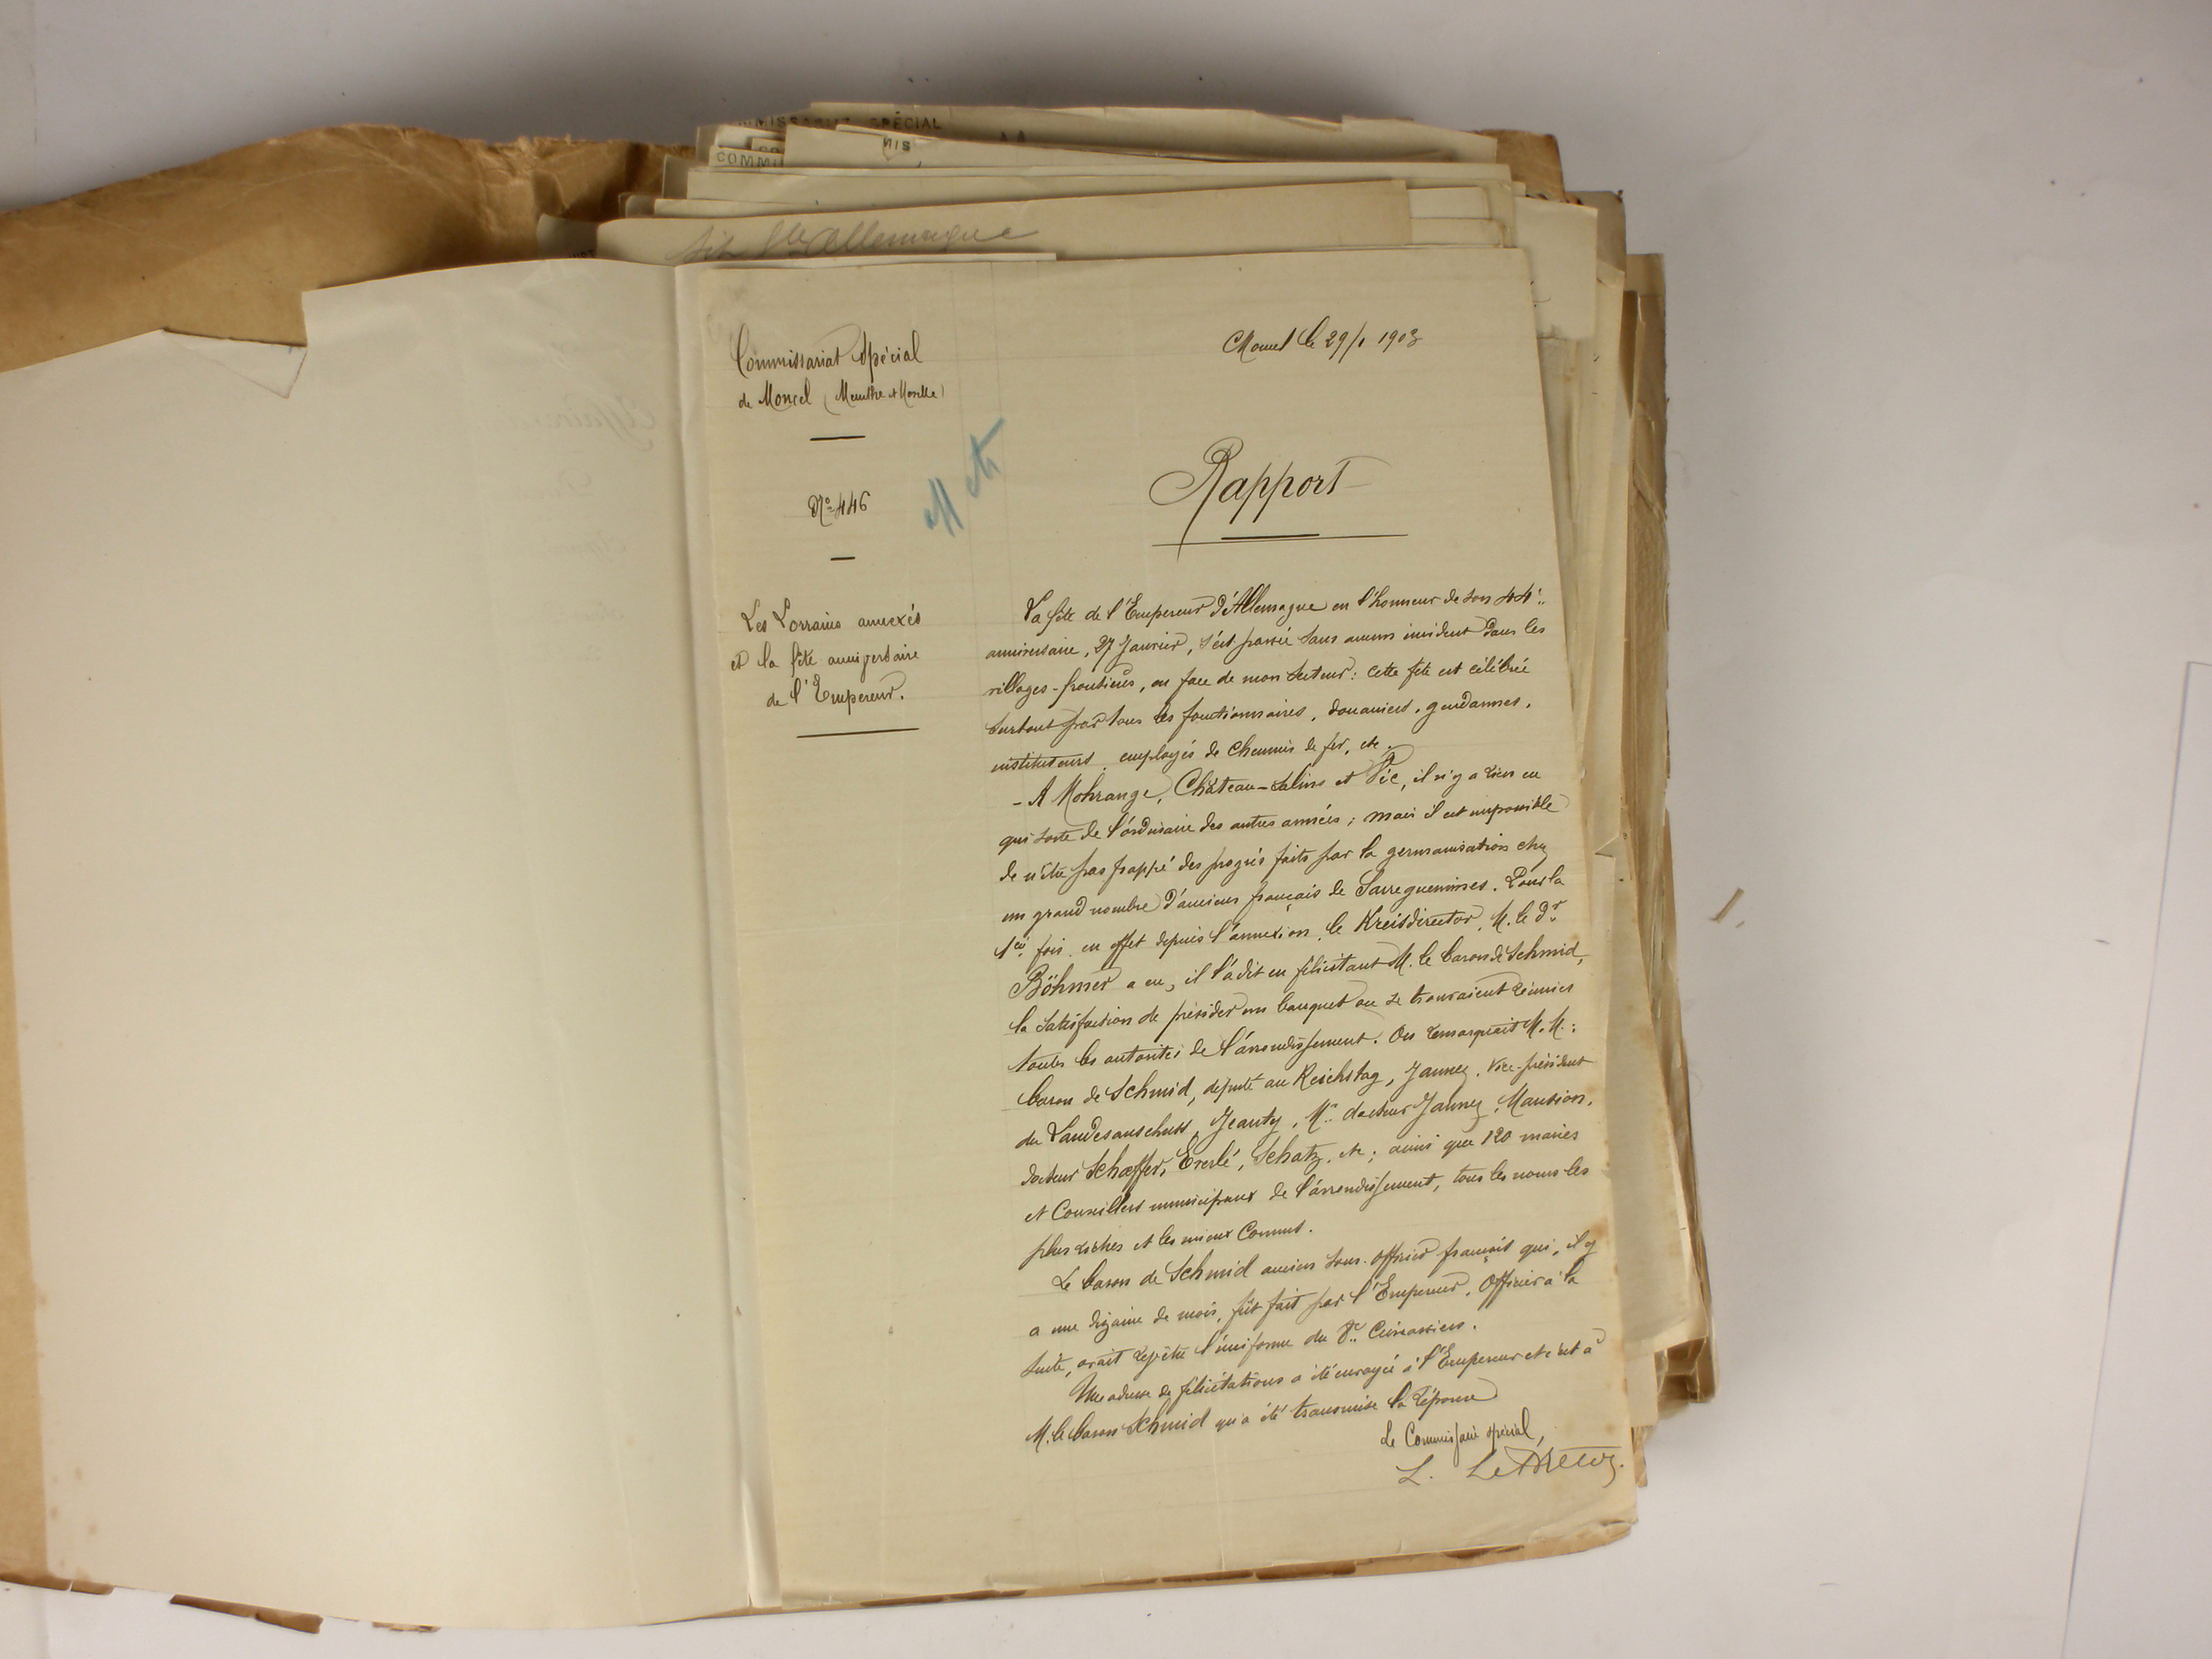 COMMISSARIAT SPÉCIAL
COMMI
NIS
Allemagne
Commissariat Spécial
de Moncel (Meurthe et Moselle)
Moncel le 29/1 1903
Metz
Rapport
N° 446
Les Lorrains annexés
et la fête anniversaire
de l'Empereur.
La fête de l'Empereur d'Allemagne en l'honneur de son 44e
anniversaire, 27 Janvier, s'est passée sans aucun incident dans les
villages-frontières, en face de mon secteur : cette fête est célébrée
surtout par tous les fonctionnaires, douaniers, gendarmes,
instituteurs, employés de chemins de fer, etc.
- A Mohrange, Château-Salins et Vic, il n'y a rien eu
qui sorte de l'ordinaire des autres années ; mais il est impossible
de n'être pas frappé des progrès faits par la germanisation chez
un grand nombre d'anciens français de Sarreguemines. Pour la
1ère fois, en effet depuis l'annexion, le Kreisdirector, M. le Dr
Böhmer a eu, il l'a dit en félicitant M. le baron de Schmid,
la satisfaction de présider un banquet ou se trouvaient réunies
toutes les autorités de l'arrondissement. On remarquait M.M. :
baron de Schmid, député au Reichstag, Jaunez, Vice-président
du Landesauschuss, Jeanty, Mr docteur Jaunez, Mansion,
docteur Schæffer, Everlé, Schatz, etc ; ainsi que 120 maires
et Conseillers municipaux de l'arrondissement, tous les noms les
plus riches et les mieux Connus.
Le baron de Schmid ancien sous-officier français qui, il y
a une dizaine de mois, fût fait par l'Empereur, Officier à la
suite, avait revêtu l'uniforme du 8e Cuirassiers.
Une adresse de félicitations a été envoyée à l'Empereur et c'est à
M. le baron Schmid qu'a été transmise la réponse
Le Commissaire spécial,